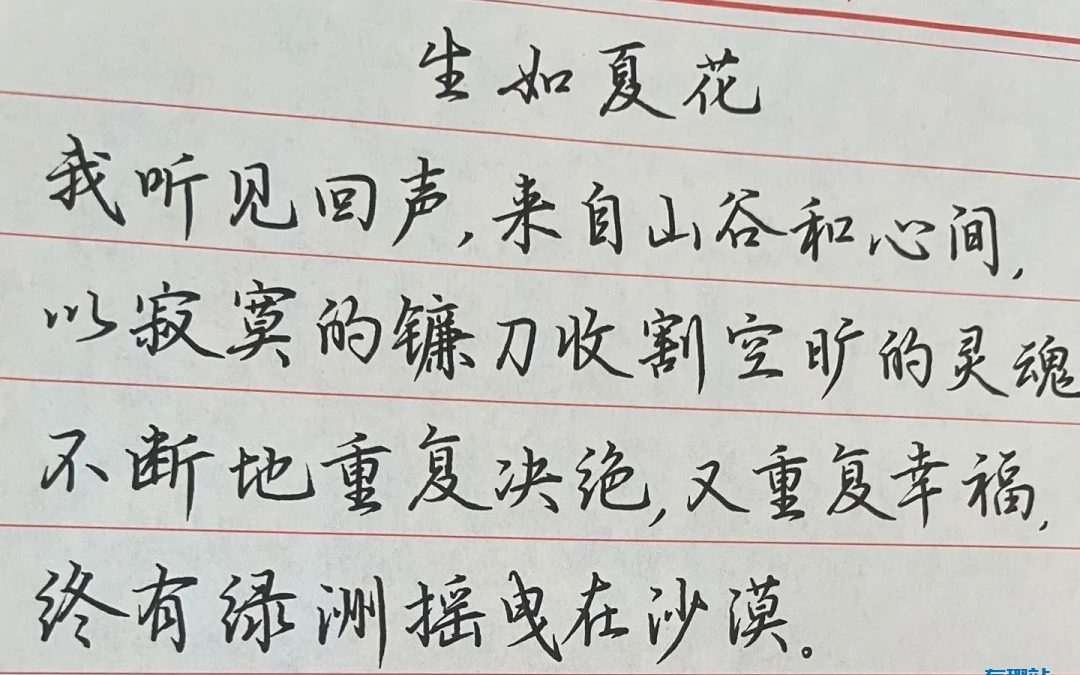 生如夏花
我听见回声,来自山谷和心间,
以寂寞的镰刀收割空旷的灵魂
不断地重复决绝,又重复幸福,
终有绿洲摇曳在沙漠。